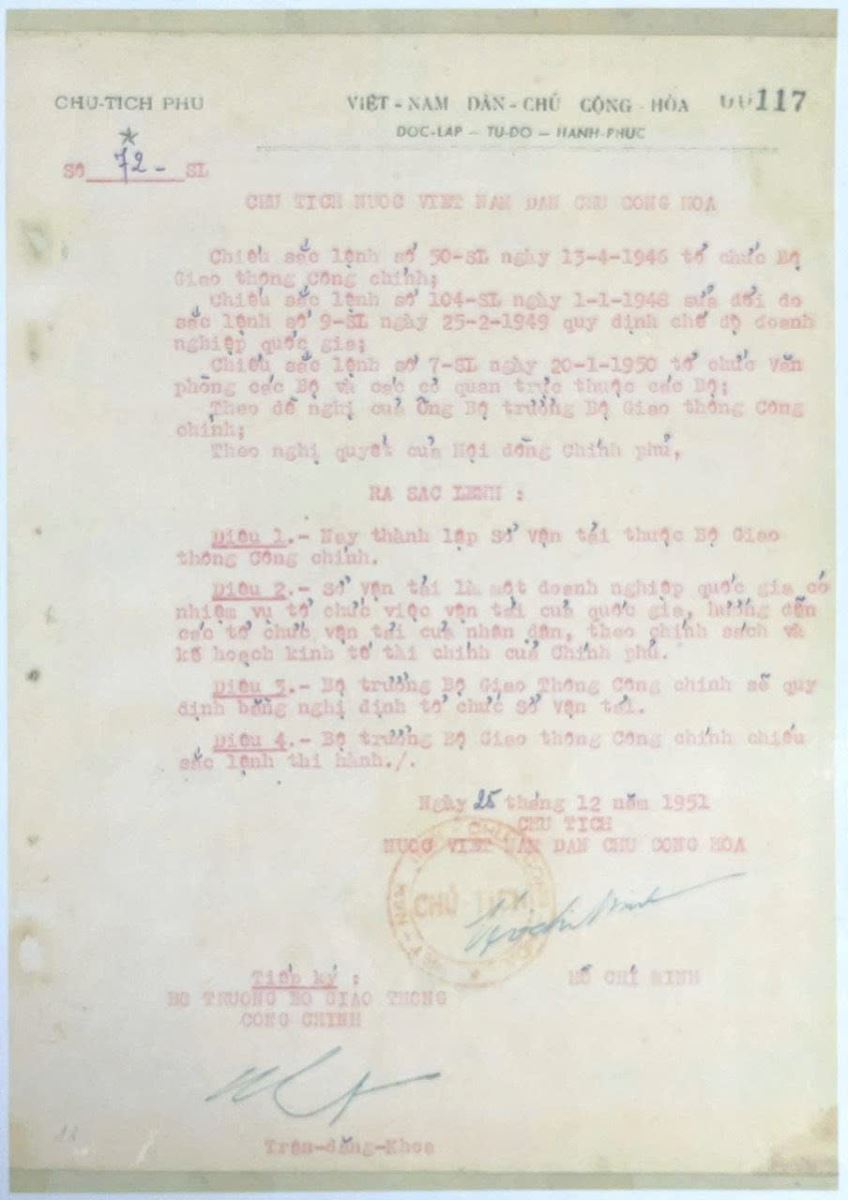 CHỦ-TỊCH PHỦ
VIỆT-NAM DÂN-CHỦ CỘNG-HÒA 00117
ĐỘC-LẬP – TỰ-DO – HẠNH-PHÚC
SỐ 72- SL
CHU TICH NUOC VIET NAM DAN CHU CONG HOA
Chiếu sắc lệnh số 50-SL ngày 13-4-1946 tổ chức Bộ
Giao thông Công chính;
Chiếu sắc lệnh số 104-SL ngày 1-1-1948 sửa đổi do
sắc lệnh số 9-SL ngày 25-2-1949 quy định chế độ doanh
nghiệp quốc gia;
Chiếu sắc lệnh số 7-SL ngày 20-1-1950 tổ chức Văn
phòng các Bộ và các cơ quan trực thuộc các Bộ;
Theo đề nghị của Ông Bộ trưởng Bộ Giao thông Công
chính;
Theo nghị quyết của Hội đồng Chính phủ,
RA SAC LENH :
Điều 1.- Nay thành lập Sở Vận tải thuộc Bộ Giao
thông Công chính.
Điều 2.- Sở Vận tải là một doanh nghiệp quốc gia có
nhiệm vụ tổ chức việc vận tải của quốc gia, hướng dẫn
các tổ chức vận tải của nhân dân, theo chính sách và
kế hoạch kinh tế tài chính của Chính phủ.
Điều 3.- Bộ trưởng Bộ Giao Thông Công chính sẽ quy
định bằng nghị định tổ chức Sở Vận tải.
Điều 4.- Bộ trưởng Bộ Giao thông Công chính chiếu
sắc lệnh thi hành./.
Ngày 25 tháng 12 năm 1951
CHU TICH
NUOC VIET NAM DAN CHU CONG HOA
CHỦ-TỊCH
Hồ Chí Minh
HỒ CHÍ MINH
Tiếp ký :
BO TRUONG BO GIAO THONG
CONG CHINH
Trần-đăng-Khoa